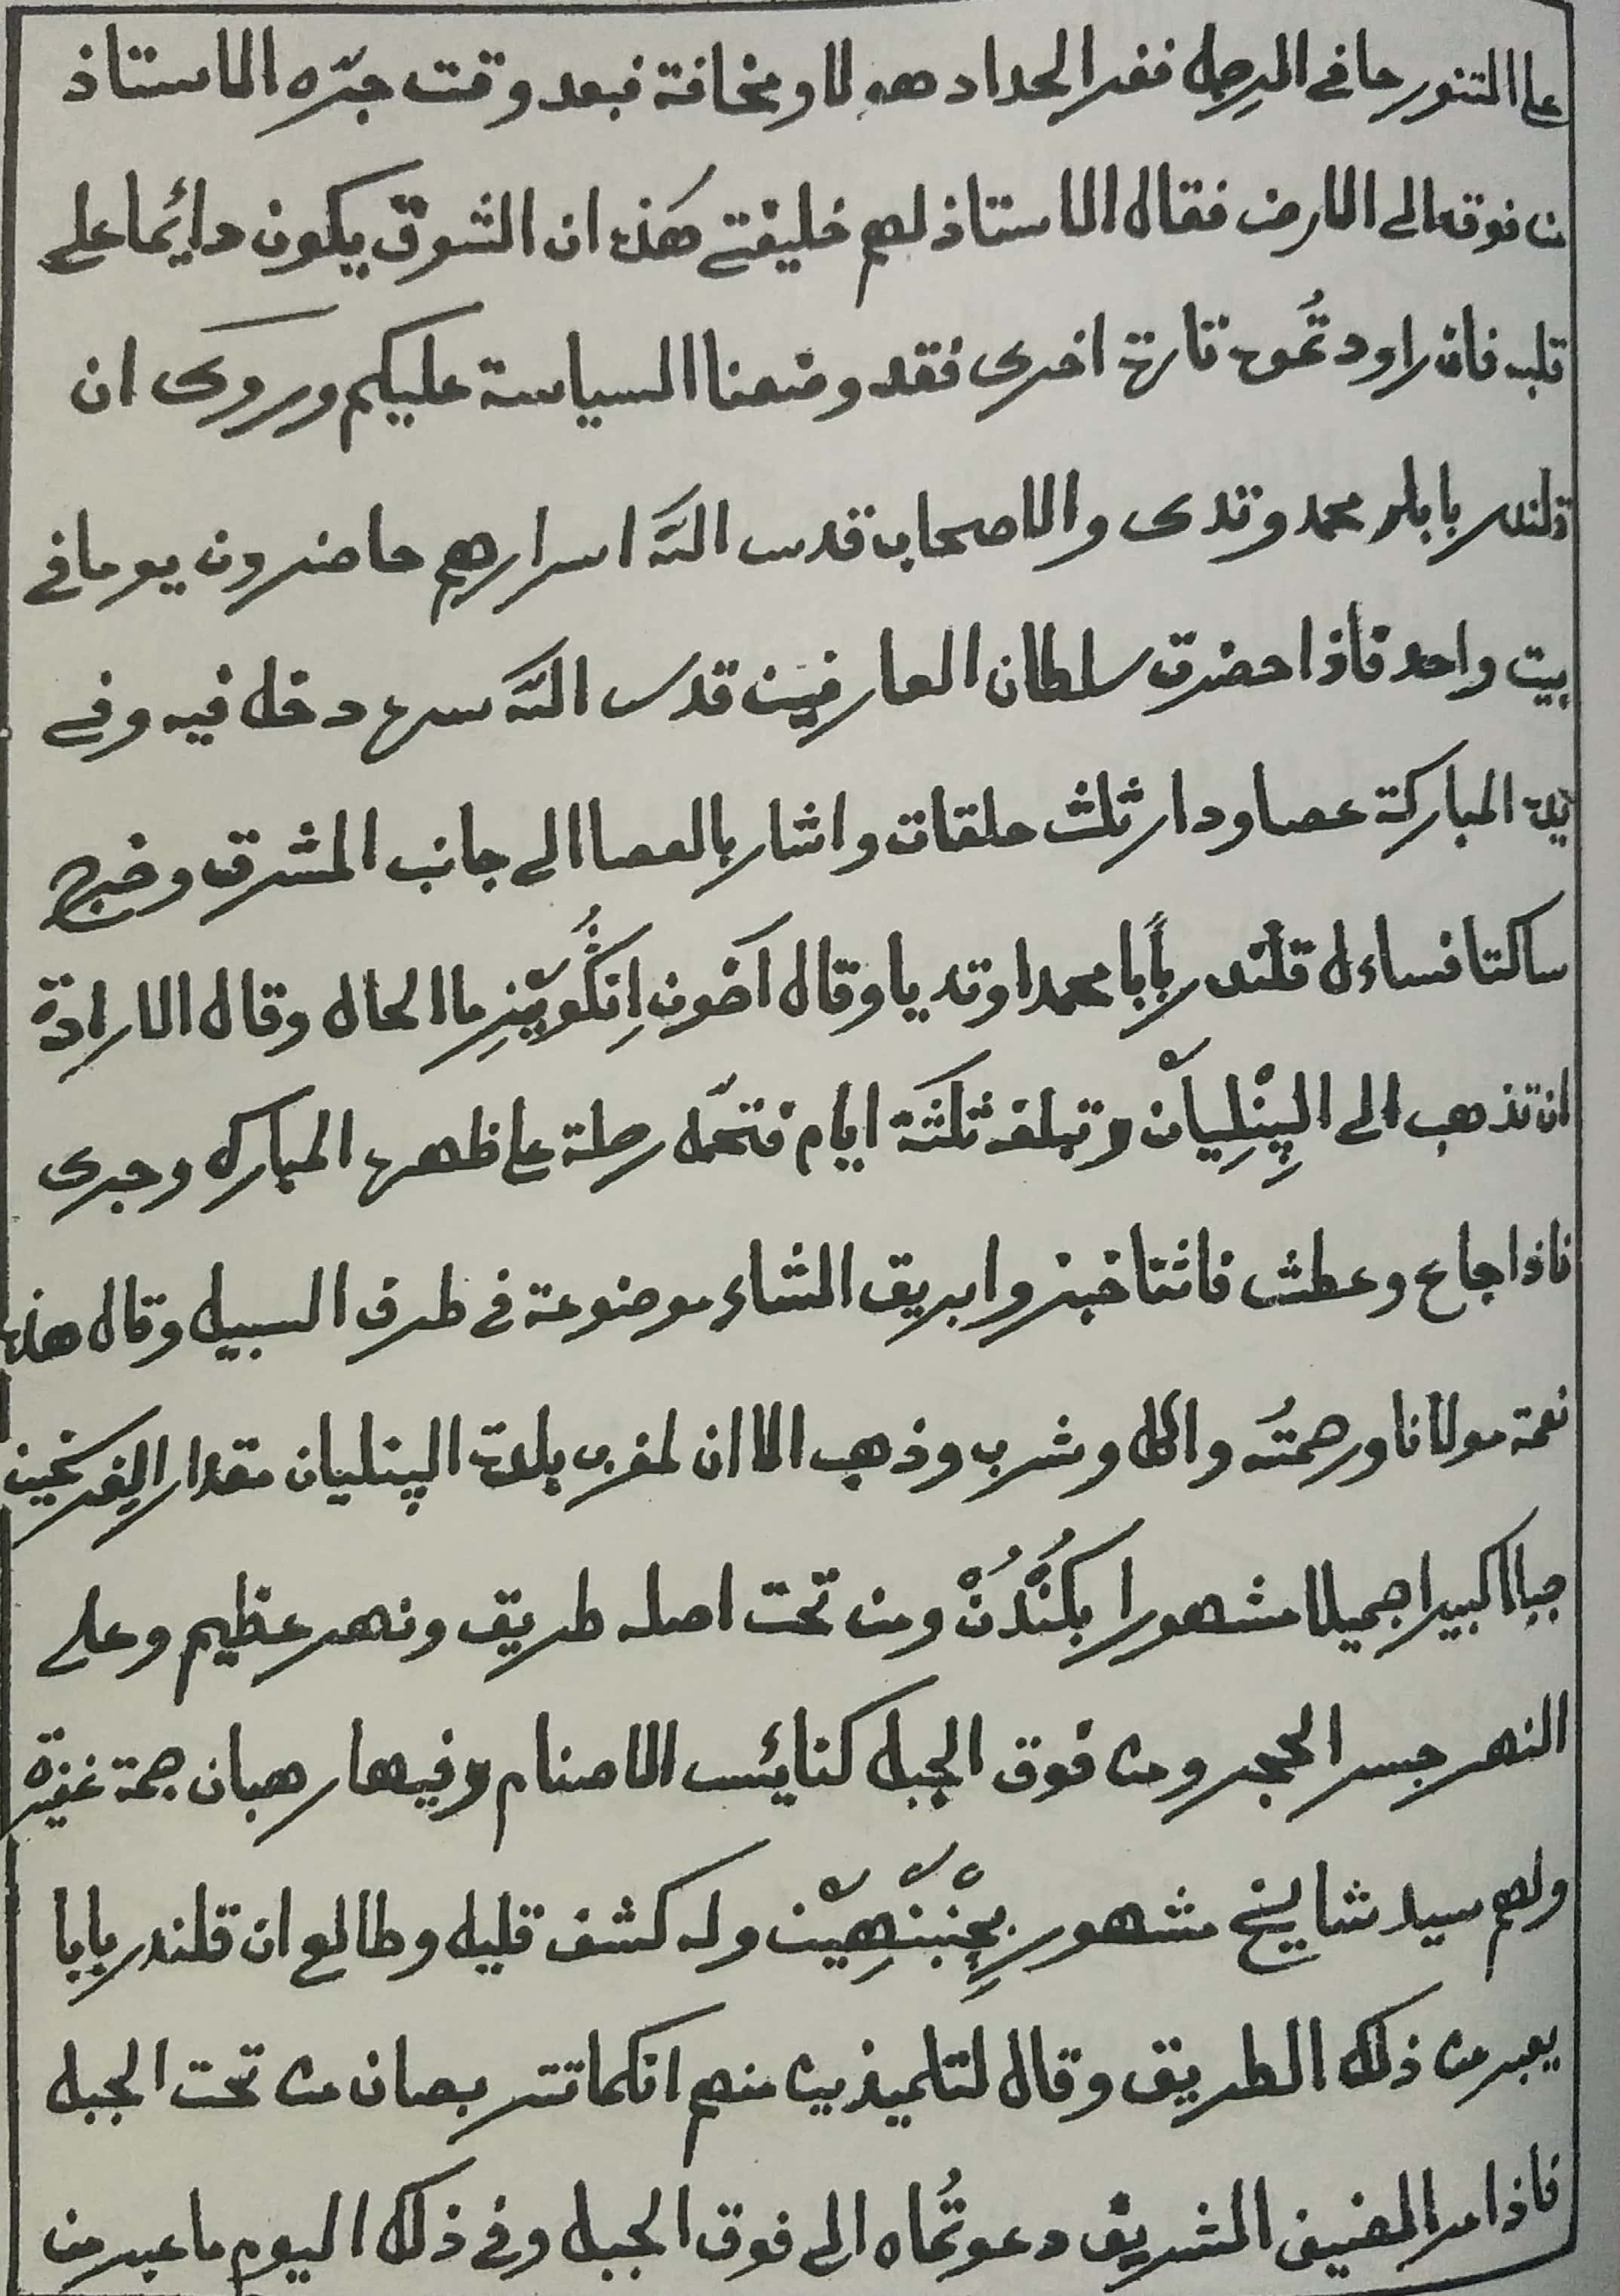 على التنور حافى الرجل ففر الحداد هولا ومخافة فبعد وقت جرّه الاستاذ
من فوقه الى الارض فقال الاستاذ لهم خليفتى هذه ان الشوق يكون دائما على
قلبه فان راودتُموه تارة اخرى فقد وضعنا السياسة عليكم وروى ان
قلندر بابا محمد وتدى والاصحاب قدس اللّه اسرارهم حاضرون يوما فى
بيت واحد فاذا حضرة سلطان العارفين قدس اللّه سره دخل فيه وفى
يده المباركة عصا ودار ثلث حلقات واشار بالعصا الى جانب المشرق وخرج
ساكتا فساءل قلندر بابا محمدا وتديا وقال آخون ما الحال وقال الارادة
ان تذهب الى الپِنْلِيآن وتبلغ ثلثة ايام فتحمّل رحلة على ظهره المبارك وجرى
فاذا جاع وعطش فاثتا خبز وابريق الشاء موضوعة فى طرف السبيل وقال هذه
نعمة مولانا ورحمتُه واكل وشرب وذهب الا ان لغرب بلدة الپنليان مقدار الفرسخين
جبلا كبيرا جميلا مشهورا بكُنْدُنْ ومن تحت اصله طريق ونهر عظيم وعلى
النهر جسر الحجر ومن فوق الجبل كنائس الاصنام وفيها رهبان جمة غفيرة
ولهم سيد شايخ مشهور وله كشف قليل وطالع ان قلندر بابا
يعبر من ذلك الطريق وقال لتلميذين منهم انكما تتربصان من تحت الجبل
فاذا مر الضيف الشريف دعوتُماه الى فوق الجبل وفى ذلك اليوم ما عبر من